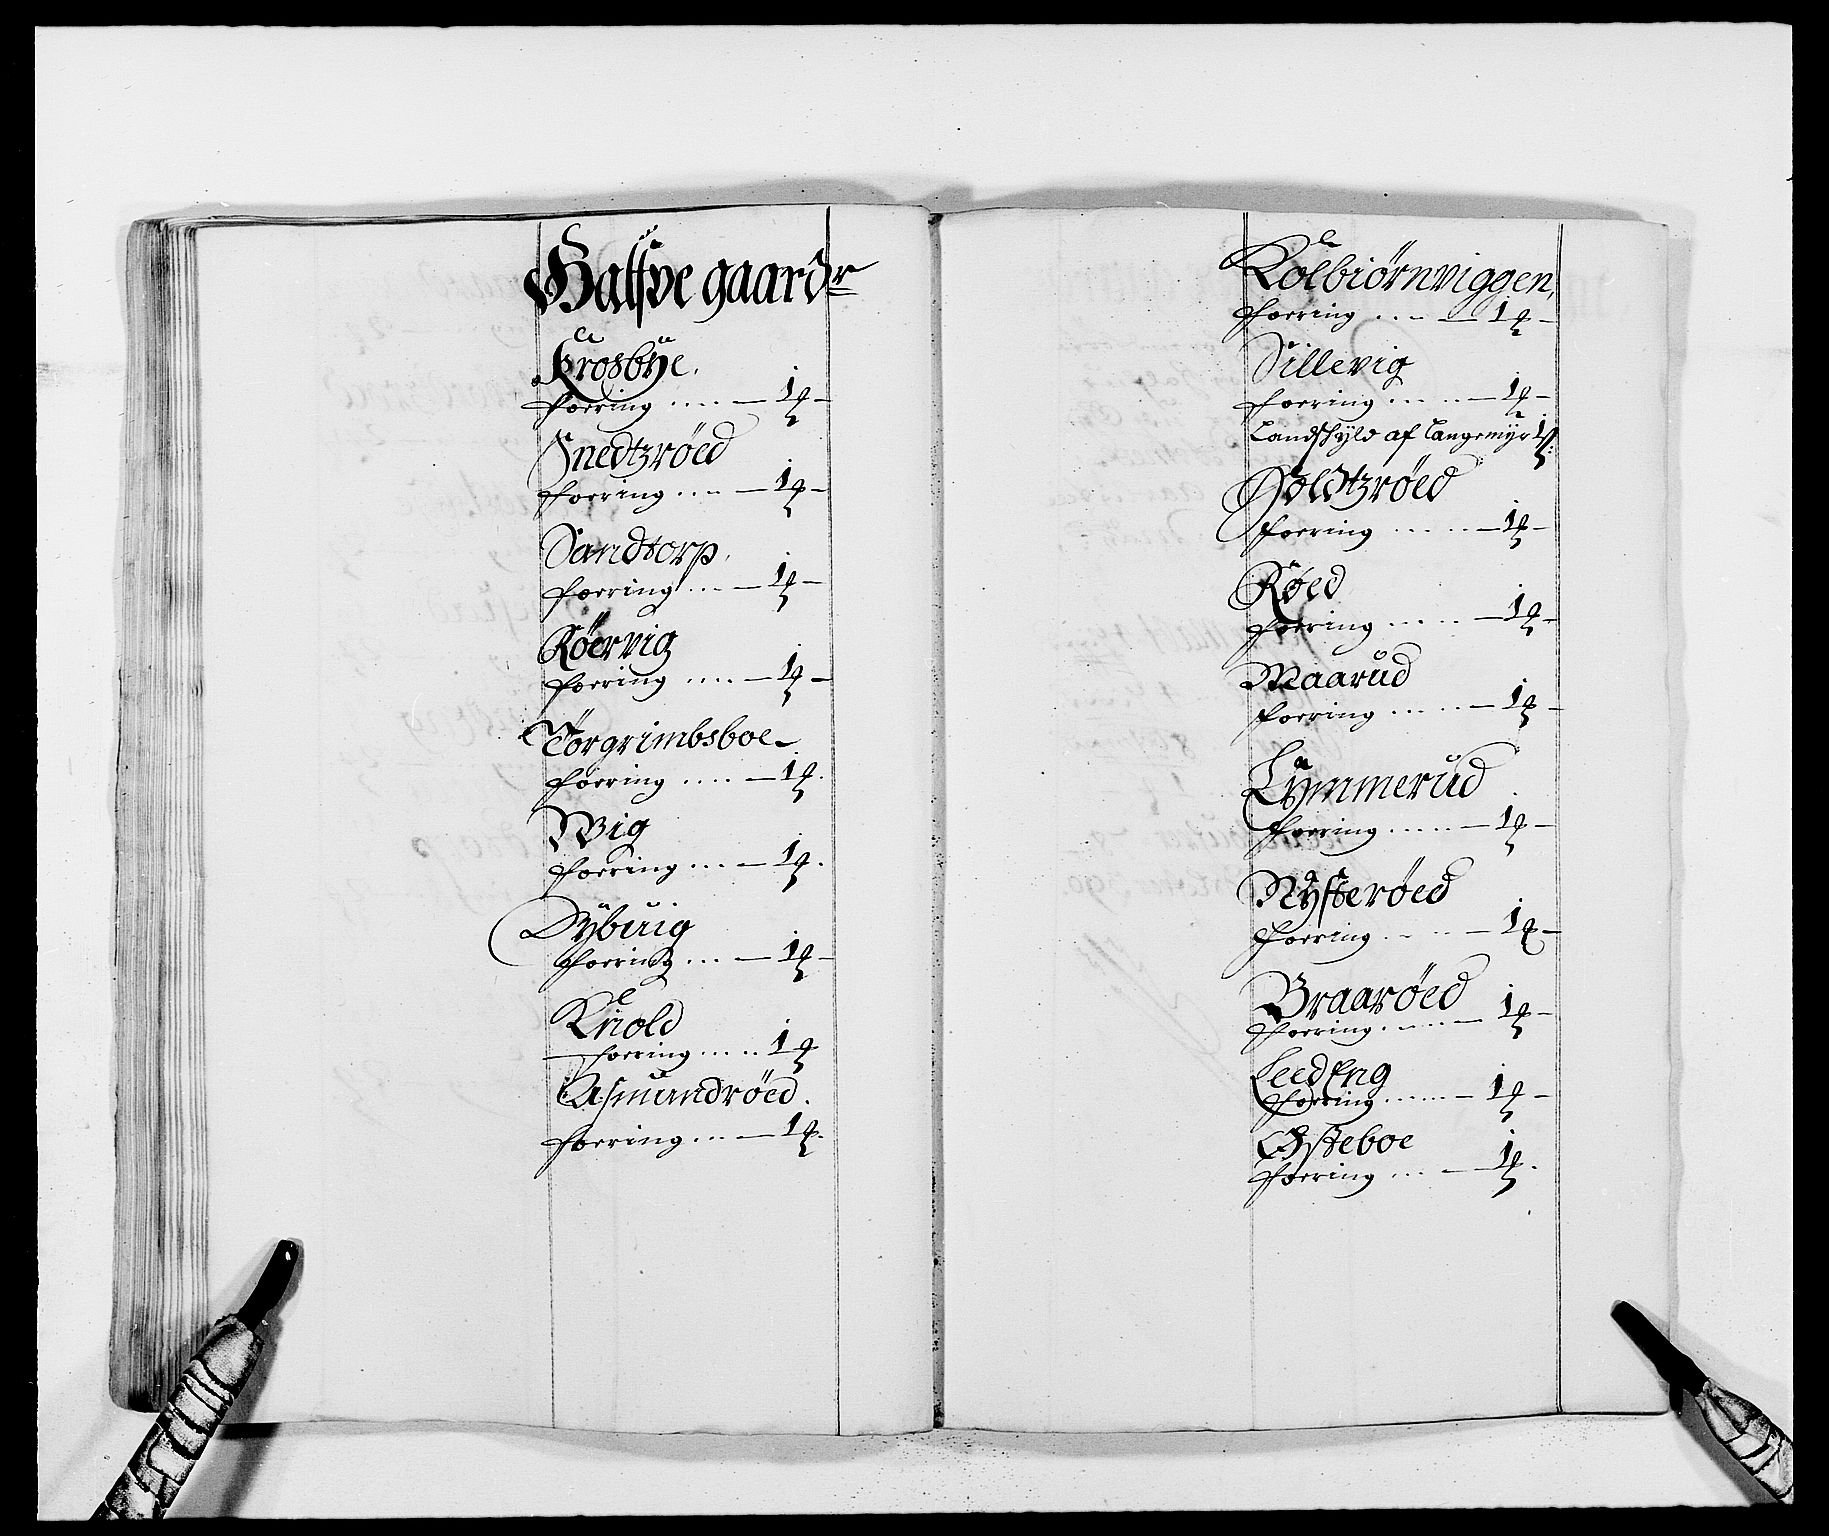 Halfve gaardr
Krosbye.
foering .... — 1 —
Snedtzrøed
foering ... — 1 —
Sandtorp.
foering ... — 1 —
Røervig
foering .... — 1 —
Torgrimbsboe
foering .... — 1.
Wig
foering ... — 1.
Dybuig
foering ... — 1 —
Kiold
foering ..... 1
Asmundrøed.
foering ... — 1.
Kolbiørnviggen,
foering ... — 1 —
Sillevig
foering ..... — 1 —
Landskyld af Langemyr 1
Holdtzrøed
foering ..... — 1 —
Røed
foering ..... — 1 —
Maarud
foering ..... — 1 —
Lymmerud
foering ..... — 1 —
Nysterøed
foering .... — 1 —
Braarøed
foering ..... — 1 —
Leedeng
foering ...... — 1 —
Østeboe
foering ... — 1.